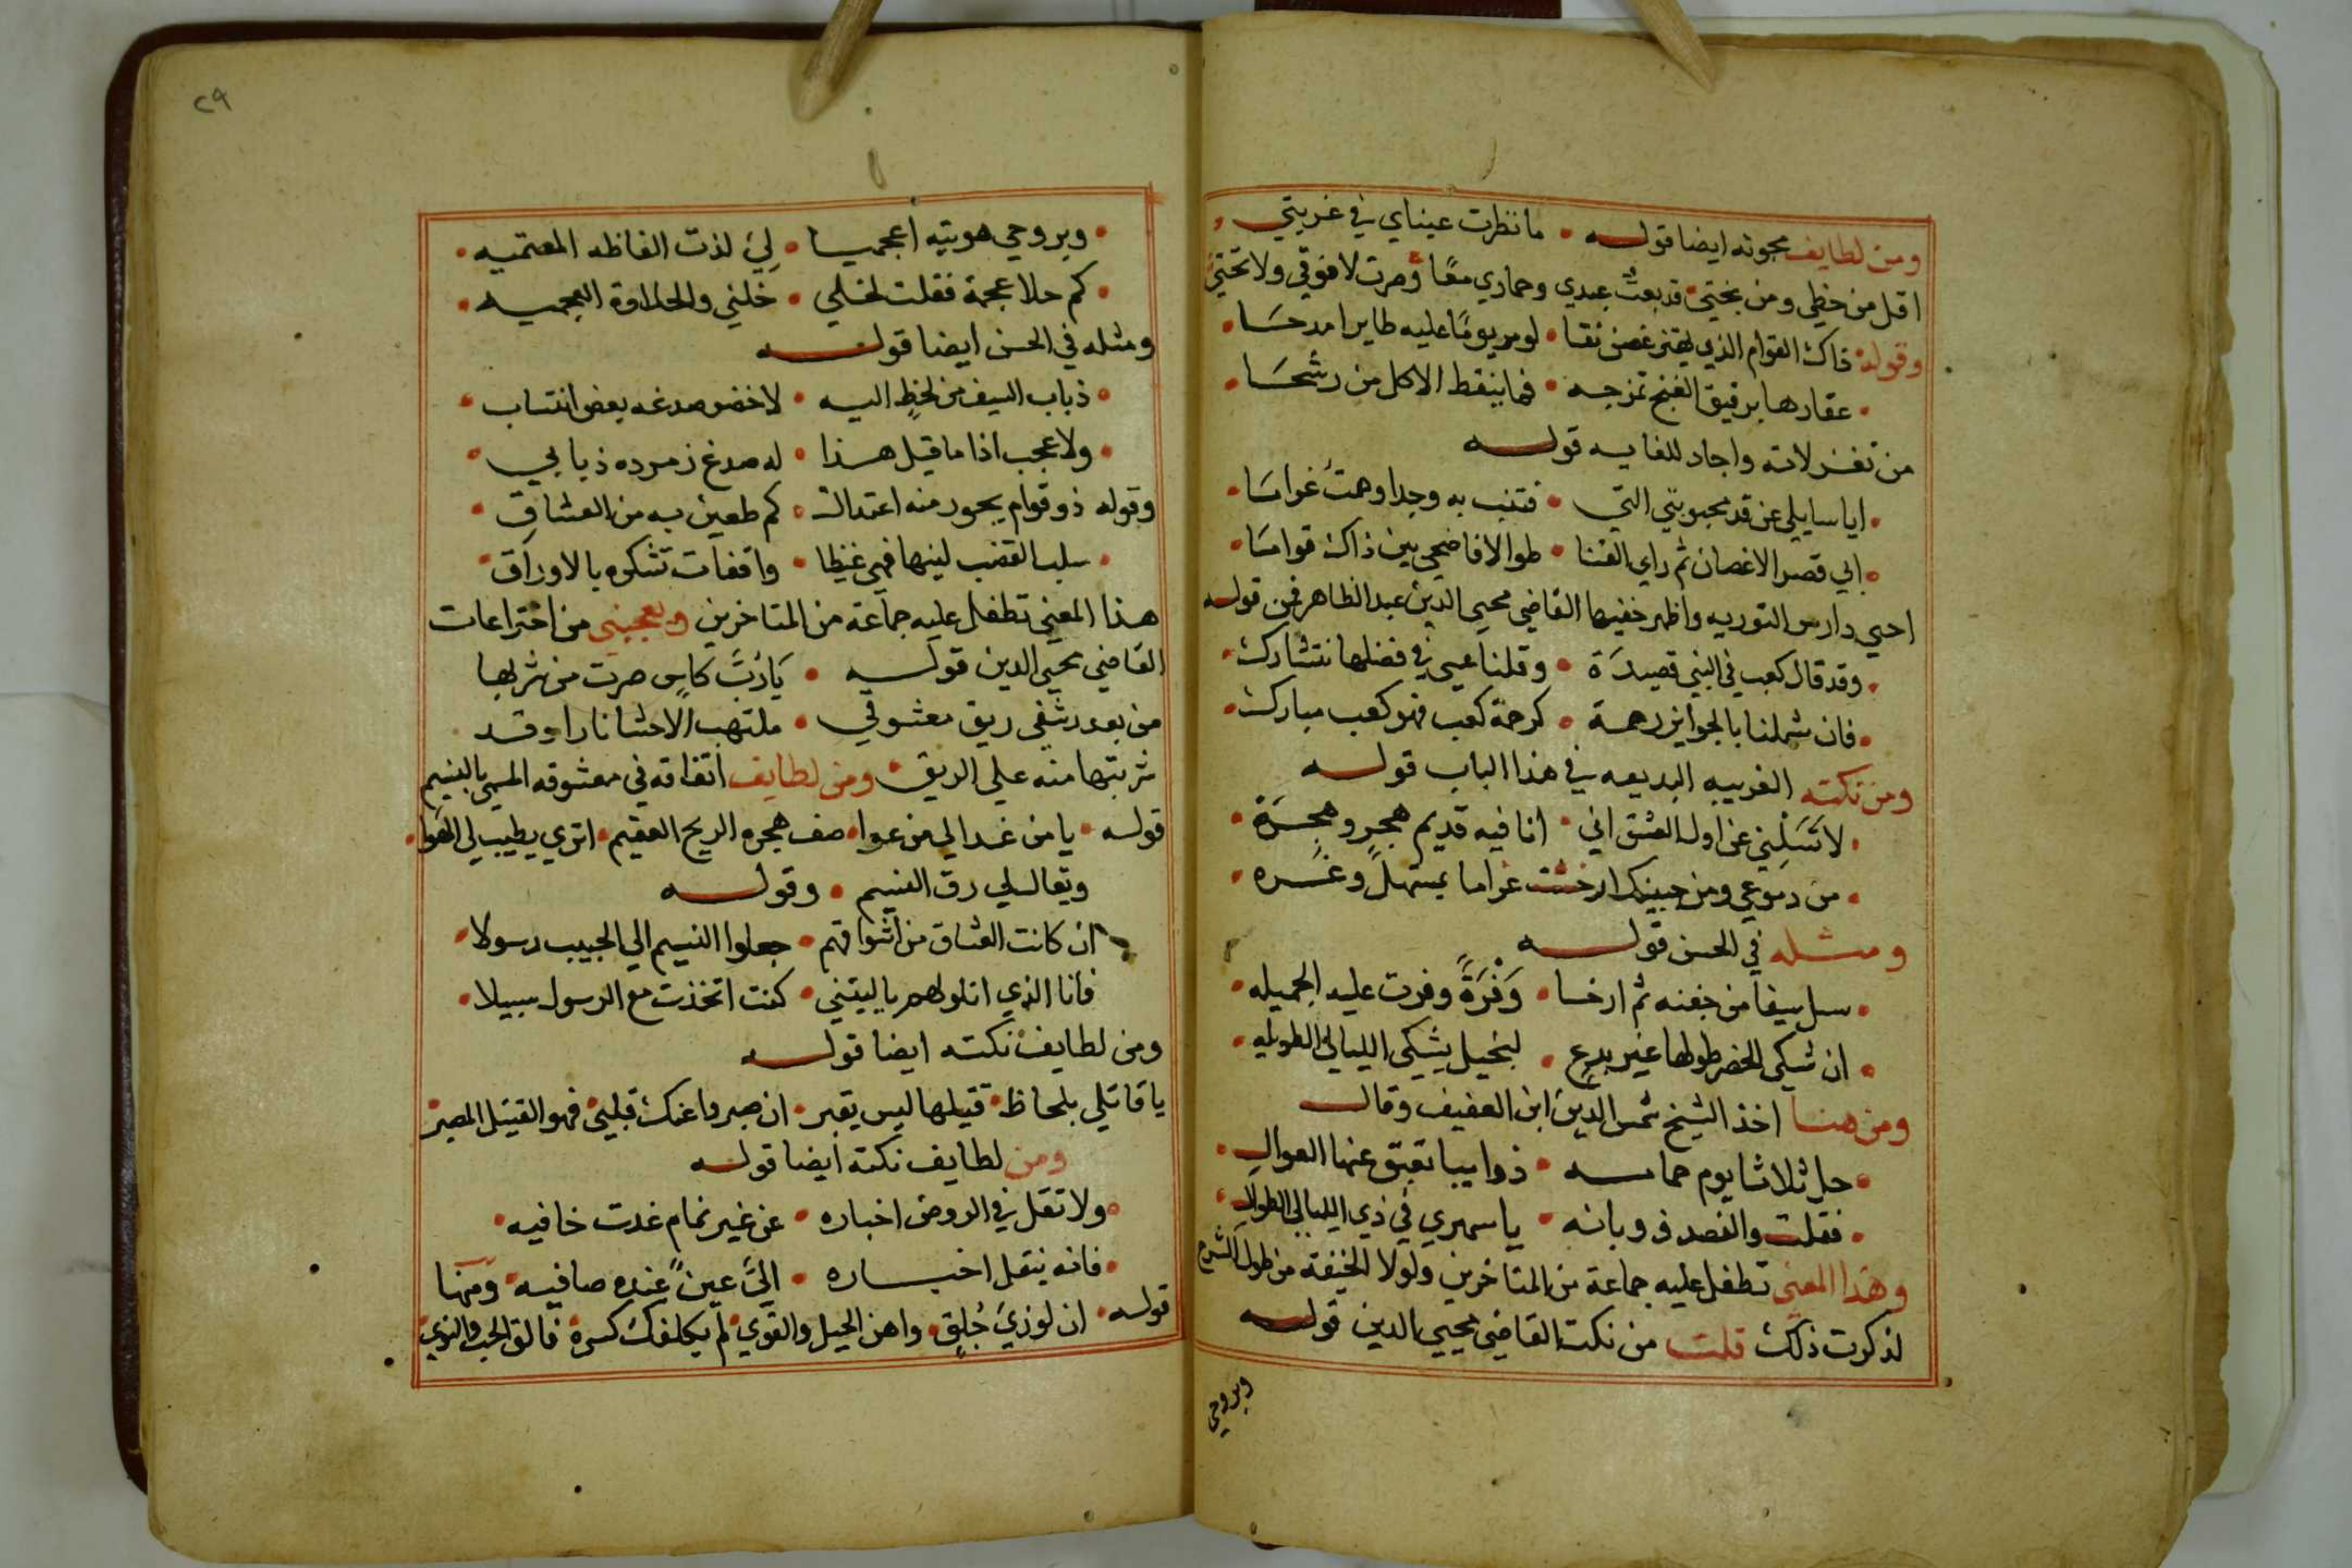 ومن لطايف مجونه ايضا قوله • ما نظرت عيناي في غربتي •
اقل من حظي ومن بختي • قد بعت عبدي وحماري معًا • وصرت لا فوقي ولا تحتي
وقوله ذاك القوام الذي يهتز غصن نقا • لو مر يومًا عليه طاير امدحا •
• عقارها برقيق الغنج تمزجه • فما ينقط الاكل من رشحا •
من تغزلاته واجاد للغايه قوله
• ايا سايلي عن قد محبوبتي التي • فتنت به وجدا وهمت غراما •
• ابي قصر الاغصان ثم راي القنا • طوالا فاضحي بين ذاك قواما •
احيي دارس التوريه واظهر خفيها القاضي محيي الدين عبد الظاهر فمن قوله
• وقد قال كعب في النبي قصيدة • وقلنا عسي في فضلها نتشارك •
• فان شملتنا بالجوايز رحمة • كرحمة كعب فهو كعب مبارك •
ومن نكته الغريبه البديعه في هذا الباب قوله
• لا تسلني عن اول العشق اني • انا فيه قديم هجر وهجرة •
• من دموعي ومن جبينك ارخت غراما بمستهل وغره •
ومثله في الحسن قوله
• سل سيفا من جفنه ثم ارخا • وفرة وفرت عليه الجميله •
• ان شكي الخصر طولها غير بدع • لنحيل يشتكي الليالي الطويله •
ومن هنا اخذ الشيخ شمس الدين ابن العفيف وقال
• حل ثلاثا يوم حمامه • ذوايبا تعبق عنها الغوال •
• فقلت والقصد ذوباته • يا سهري في ذي الليالي الطوال •
وهذا المعني تطفل عليه جماعة من المتاخرين ولولا الخيفة من طول الشرح
لذكرت ذلك قلت من نكت القاضي محيي الدين قوله
وبروحي
٢٩
• وبروحي هويته اعجميا • لي لذت الفاظه المعتميه •
• كم حلا عجمة فقلت لخلي • خلني والحلاوة العجميه •
ومثله في الحسن ايضا قوله
• ذباب السيف من لحظ اليه • لاخضر صدغه بعض انتساب •
• ولا عجب اذا ما قيل هذا • له صدغ زمرده ذبابي •
وقوله ذو قوام يجور منه اعتدال • كم طعين به من العشاق •
• سلب القضب لينها فهي غيظا • واقفات تشكوه بالاوراق •
هذا المعني تطفل عليه جماعة من المتاخرين ويعجبني من اختراعات
القاضي محيي الدين قوله • يا رب كاس صرت من شربها
من بعد رشفي ريق معشوقي • ملتهب الاحشا نارا وقد
شربتها منه علي الريق • ومن لطايف اتفاقه في معشوقه المسمي بالنسيم
قوله • يا من غدا لي من عوا • صف هجره الريح العقيم • اتري يطيب لي الهوا •
ويقال لي رق النسيم • وقوله
ان كانت العشاق من اشواقهم • جعلوا النسيم الي الحبيب رسولا •
فانا الذي اتلو لهم يا ليتني • كنت اتخذت مع الرسول سبيلا •
ومن لطايف نكته ايضا قوله
يا قاتلي بلحاظ • قتيلها ليس يقبر • ان صبروا عنك قلبي • فهو القتيل المصبر
ومن لطايف نكته ايضا قوله
• ولا تقل في الروض اخباره • عن غير نمام غدت خافيه •
• فانه ينقل اخباره • الي عين عنده صافيه • ومنها
قوله • ان لوزي جلق • واهن الحيل والقوي • لم يكلفك كسرة • فالق الحب والنوي